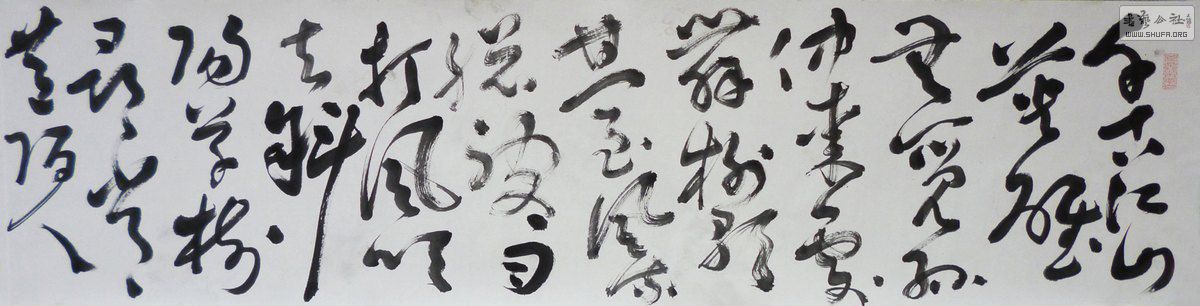 千古江山
英雄
無覓孫
仲謀處
舞榭歌
臺風流
總被雨
打風吹
去斜
陽草樹
尋常
巷陌人
書藝公社
WWW.SHUFA.ORG